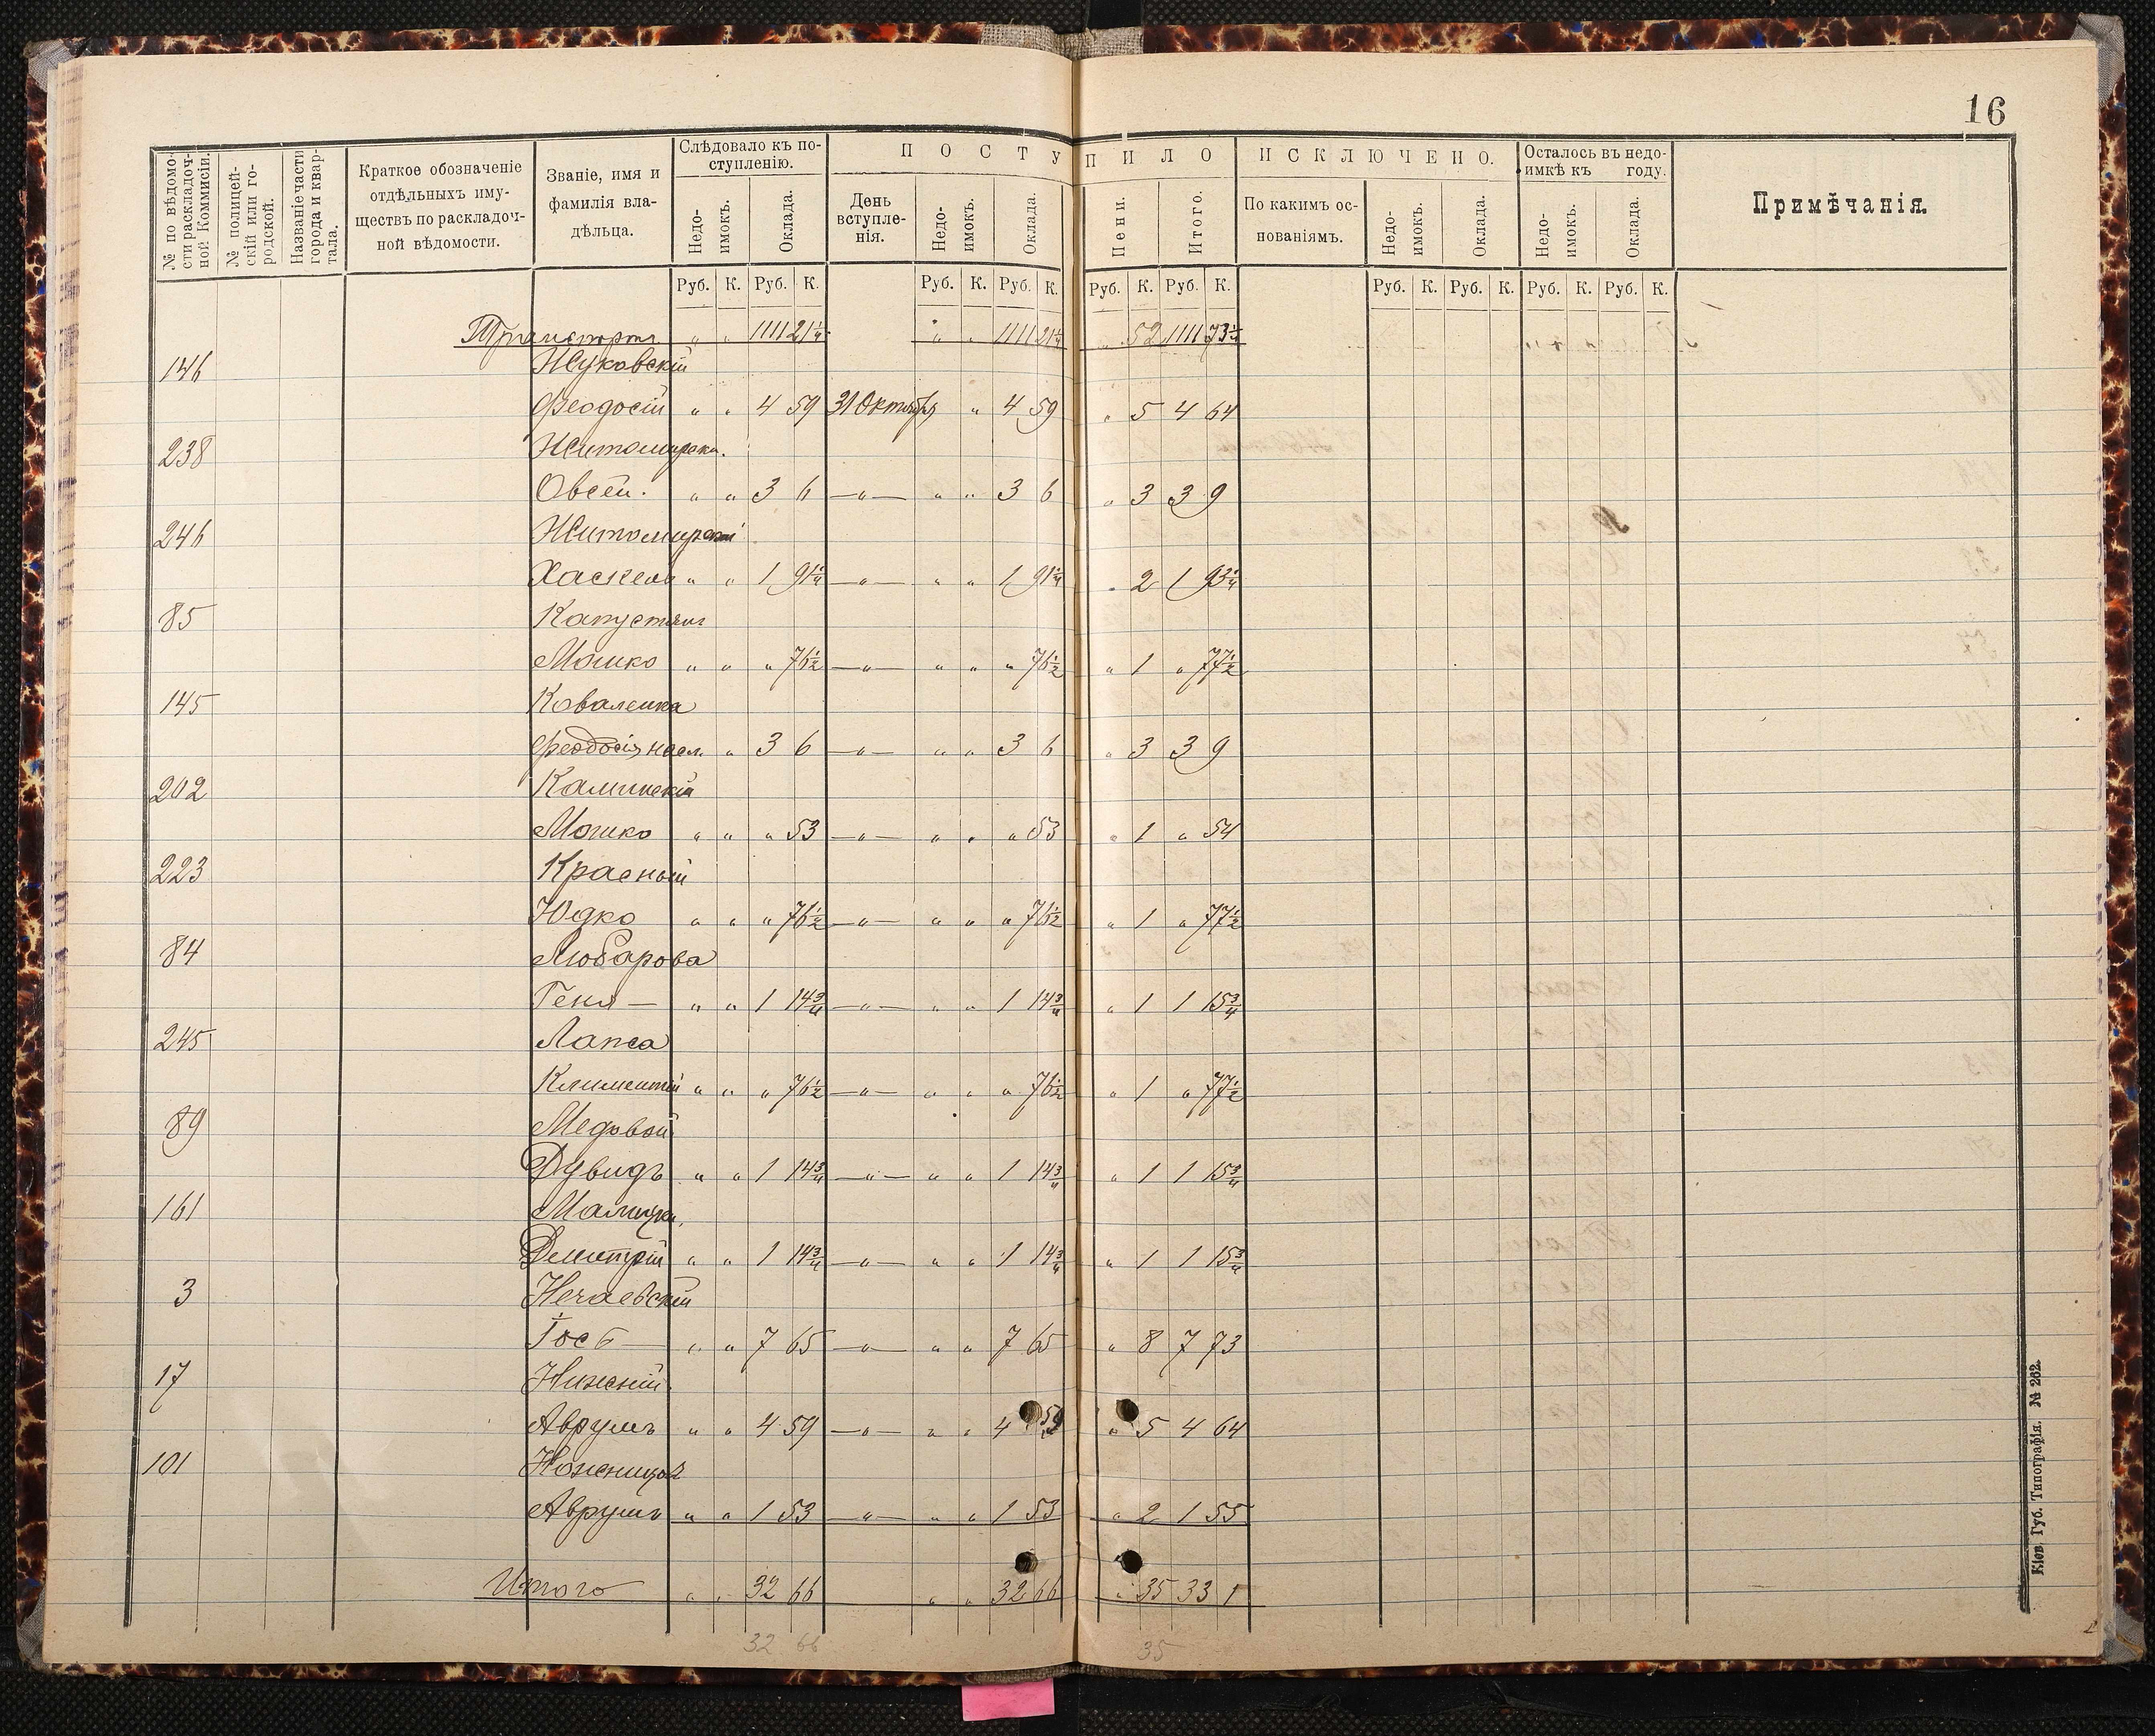 16
№ по вѣдомости раскладочной Коммисіи.
№ полицейскій или городской.
Названіе части города и квартала.
Краткое обозначеніе отдѣльныхъ имуществъ по раскладочной вѣдомости.
Званіе, имя и фамилія владѣльца.
Слѣдовало къ поступленію.
Недоимокъ. Оклада.
ПОСТУПИЛО
День вступленія. Недоимокъ. Оклада. Пени. Итого.
ИСКЛЮЧЕНО.
По какимъ основаніямъ. Недоимокъ. Оклада.
Осталось въ недоимкѣ къ году.
Недоимокъ. Оклада.
Примѣчанія.
Руб. К. Руб. К. Руб. К. Руб. К. Руб. К. Руб. К. Руб. К. Руб. К. Руб. К. Руб. К.
Транспортъ " " 1111 21 1/4 " " 1111 21 1/4 " 52 1111 73 1/4
146 Жуковскій
Феодосій " " 4 59 31 Октября " 4 59 " 5 4 64
238 Житомирск.
Овсей. " " 3 6 —"— " " 3 6 " 3 3 9
246 Житомирскій
Хаскель " " 1 91 1/4 —"— " " 1 91 1/4 " 2 1 93 1/4
85 Капустянъ
Мошко " " " 76 1/2 —"— " " " 76 1/2 " 1 " 77 1/2
145 Коваленка
Феодосія насл. " 3 6 —"— " " 3 6 " 3 3 9
202 Каминскій
Мошко " " " 53 —"— " " " 53 " 1 " 54
223 Красный
Юдко " " " 76 1/2 —"— " " " 76 1/2 " 1 " 77 1/2
84 Любарова
Геня — " " 1 14 3/4 —"— " " 1 14 3/4 " 1 1 15 3/4
245 Лапса
Климентій " " " 76 1/2 —"— " " " 76 1/2 " 1 " 77 1/2
89 Медовой
Дувидъ " " 1 14 3/4 —"— " " 1 14 3/4 " 1 1 15 3/4
161
Дмитрій " " 1 14 3/4 —"— " " 1 14 3/4 " 1 1 15 3/4
3 Нечаевскій
Іосъ — " " 7 65 —"— " " 7 65 " 8 7 73
17 Нижній
Аврумъ " " 4 59 —"— " " 4 59 " 5 4 64
101
Аврумъ " " 1 53 —"— " " 1 53 " 2 1 55
Итого " " 32 66 " " 32 66 " 35 33 1
32 66 35
Кіев. Губ. Типографія. № 262.